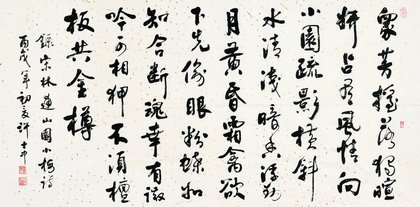 眾芳搖落獨暄
妍占尽風情向
小園疏影横斜
水清淺暗香浮動
月黄昏霜禽欲
下先偷眼粉蝶如
知合斷魂幸有微
吟可相狎不須檀
板共金樽
錄宋林逋山園小梅詩
丙戌年初夏許